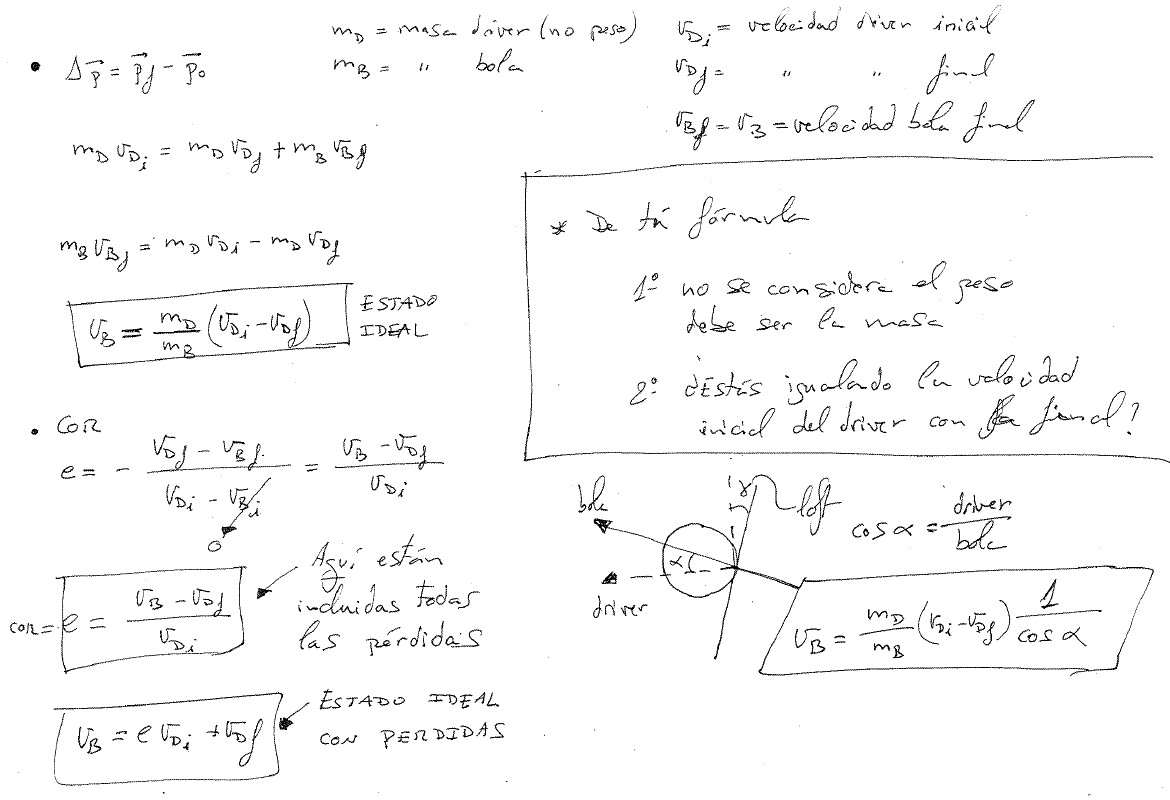 m_D = masa driver (no peso)
m_B = " bola
v_Di = velocidad driver inicial
v_Df = " " final
v_Bf = v_B = velocidad bola final
• Δp⃗ = p⃗_f - p⃗_o
m_D v_Di = m_D v_Df + m_B v_Bf
m_B v_Bf = m_D v_Di - m_D v_Df
v_B = m_D/m_B (v_Di - v_Df) ESTADO
IDEAL
* De tú fórmula
1º no se considera el peso
debe ser la masa
2º ¿Estás igualando la velocidad
inicial del driver con la final?
• COR
e = - (v_Df - v_Bf)/(v_Di - v_Bi) = (v_B - v_Df)/v_Di
0
COR = e = (v_B - v_Df)/v_Di
Aquí están
incluidas todas
las pérdidas
v_B = e v_Di + v_Df
ESTADO IDEAL
CON PERDIDAS
bola
driver
α
γ
loft
cos α = driver/bola
v_B = m_D/m_B (v_Di - v_Df) 1/cos α